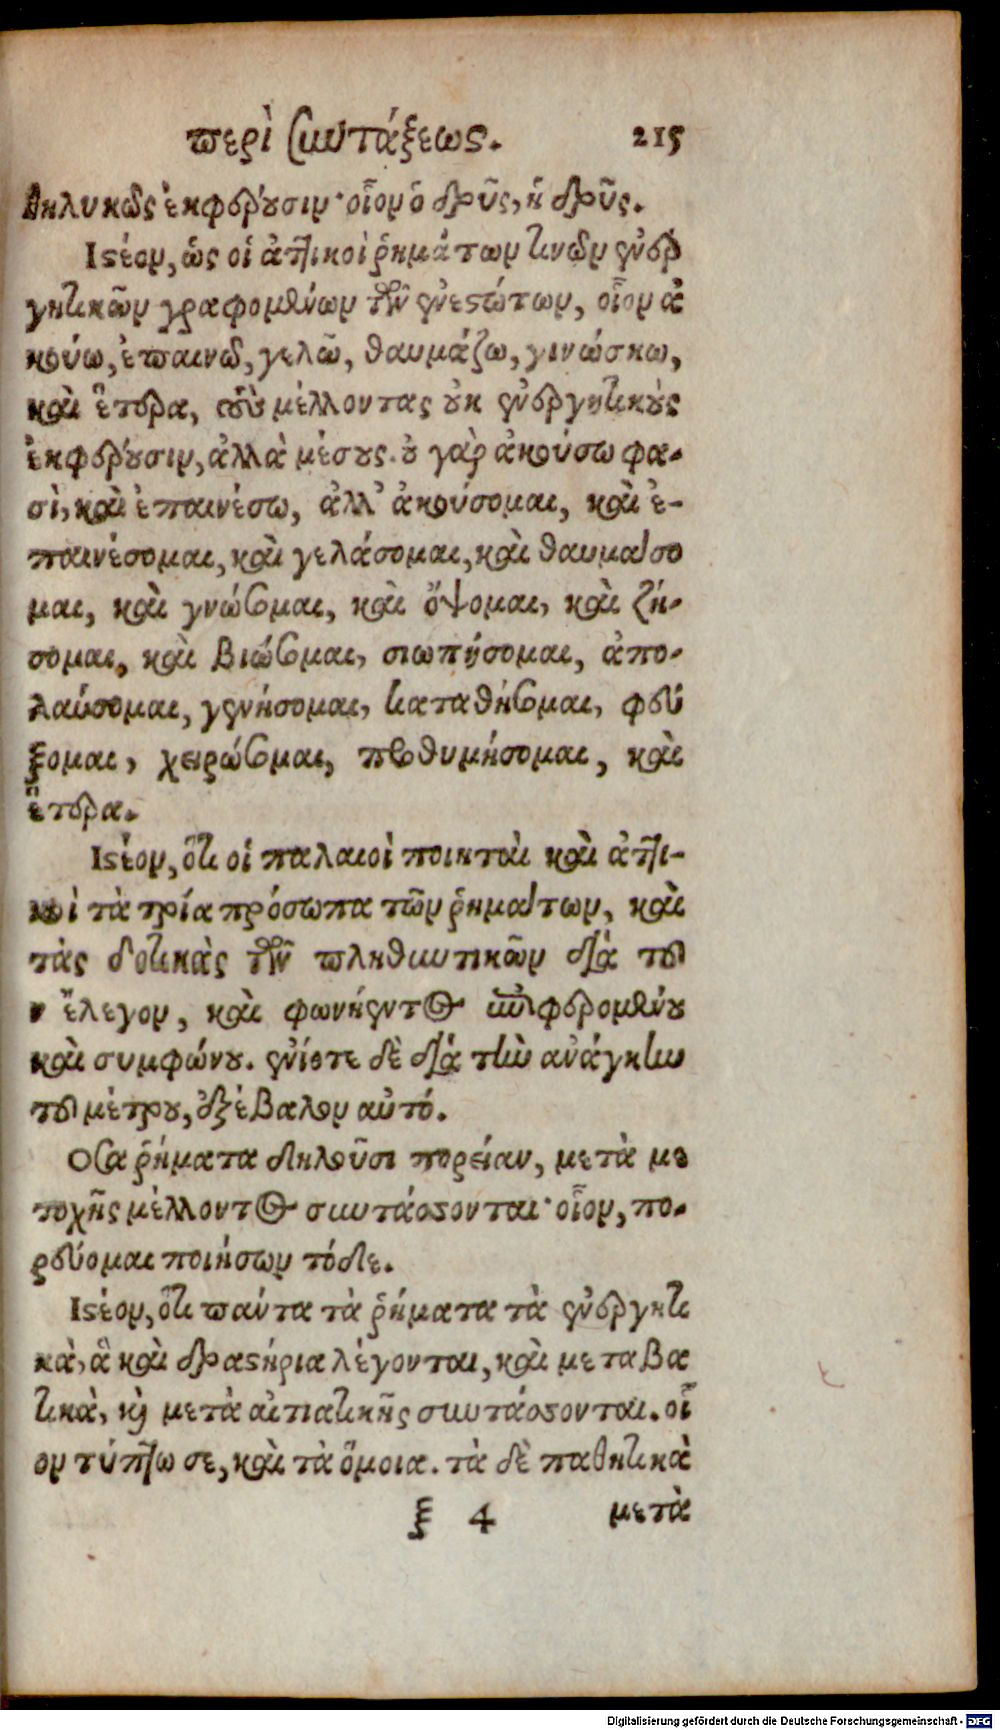 περὶ συντάξεως. 215
θηλυκῶς ἐκφέρουσιν· οἷον ὁ δρῦς, ἡ δρῦς.
Ιστέον, ὡς οἱ ἀττικοὶ ῥημάτων τινῶν ἐνερ
γητικῶν γραφομένων τῶν ἐνεστώτων, οἷον ἀ
κούω, ἐπαινῶ, γελῶ, θαυμάζω, γινώσκω,
καὶ ἕτερα, τοὺς μέλλοντας οὐκ ἐνεργητικοὺς
ἐκφέρουσιν, ἀλλὰ μέσους. οὐ γὰρ ἀκούσω φα-
σὶ, καὶ ἐπαινέσω, ἀλλ' ἀκούσομαι, καὶ ἐ-
παινέσομαι, καὶ γελάσομαι, καὶ θαυμάσο
μαι, καὶ γνώσομαι, καὶ ὄψομαι, καὶ ζή-
σομαι, καὶ βιώσομαι, σιωπήσομαι, ἀπο-
λαύσομαι, γενήσομαι, καταθήσομαι, φεύ
ξομαι, χειρώσομαι, προθυμήσομαι, καὶ
ἕτερα.
Ιστέον, ὅτι οἱ παλαιοὶ ποιηταὶ καὶ ἀττι-
κοὶ τὰ τρία πρόσωπα τῶν ῥημάτων, καὶ
τὰς δοτικὰς τῶν πληθυντικῶν διὰ τοῦ
ν ἔλεγον, καὶ φωνήεντος ἐπιφερομένου
καὶ συμφώνου. ἐνίοτε δὲ διὰ τὴν ἀνάγκην
τοῦ μέτρου, ἐξέβαλον αὐτό.
Οσα ῥήματα δηλοῦσι πορείαν, μετὰ με
τοχῆς μέλλοντος συντάσσονται· οἷον, πο-
ρεύομαι ποιήσων τόδε.
Ιστέον, ὅτι πάντα τὰ ῥήματα τὰ ἐνεργητι
κὰ, ἃ καὶ δραστήρια λέγονται, καὶ μεταβα
τικὰ, καὶ μετὰ αἰτιατικῆς συντάσσονται. οἷ
ον τύπτω σε, καὶ τὰ ὅμοια. τὰ δὲ παθητικὰ
ξ 4 μετὰ
Digitalisierung gefördert durch die Deutsche Forschungsgemeinschaft - DFG